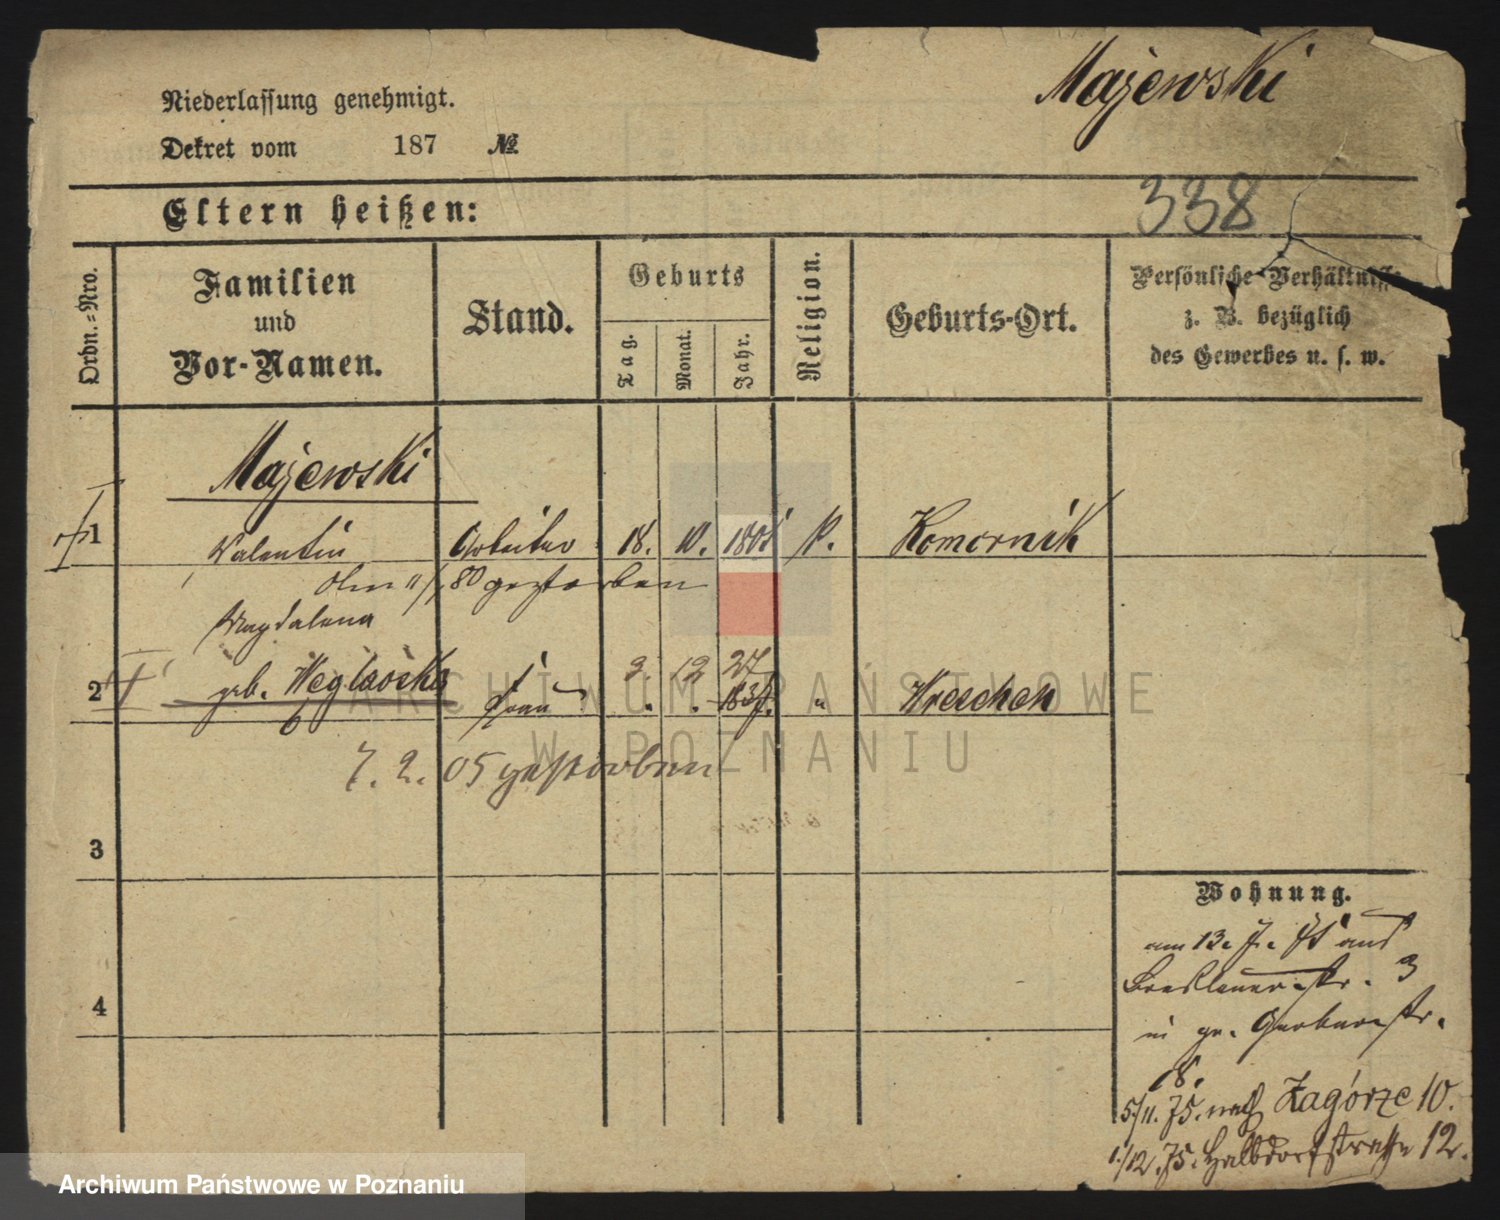 Majewski
Niederlassung genehmigt.
Dekret vom 187 №
338
Eltern heißen:
Ordn.-Nro.
Familien
und
Vor-Namen.
Stand.
Geburts
Tag.
Monat.
Jahr.
Religion.
Geburts-Ort.
Persönliche Verhältnisse
z. B. bezüglich
des Gewerbes u. s. w.
Majewski
1 Valentin Arbeiter 18. 10. k. Komornik
gestorben
Magdalena
2 geb. Frau 2. 12 27 " Wreschen
7. 2. 05 gestorben
3
4
Wohnung.
am 13. 7. aus
Breslauerstr. 3
in gr. Gerberstr.
18.
5/11. 75. nach Zagórze 10.
1/12. 75. Halbdorfstraße 12.
ARCHIWUM PAŃSTWOWE
W POZNANIU
Archiwum Państwowe w Poznaniu